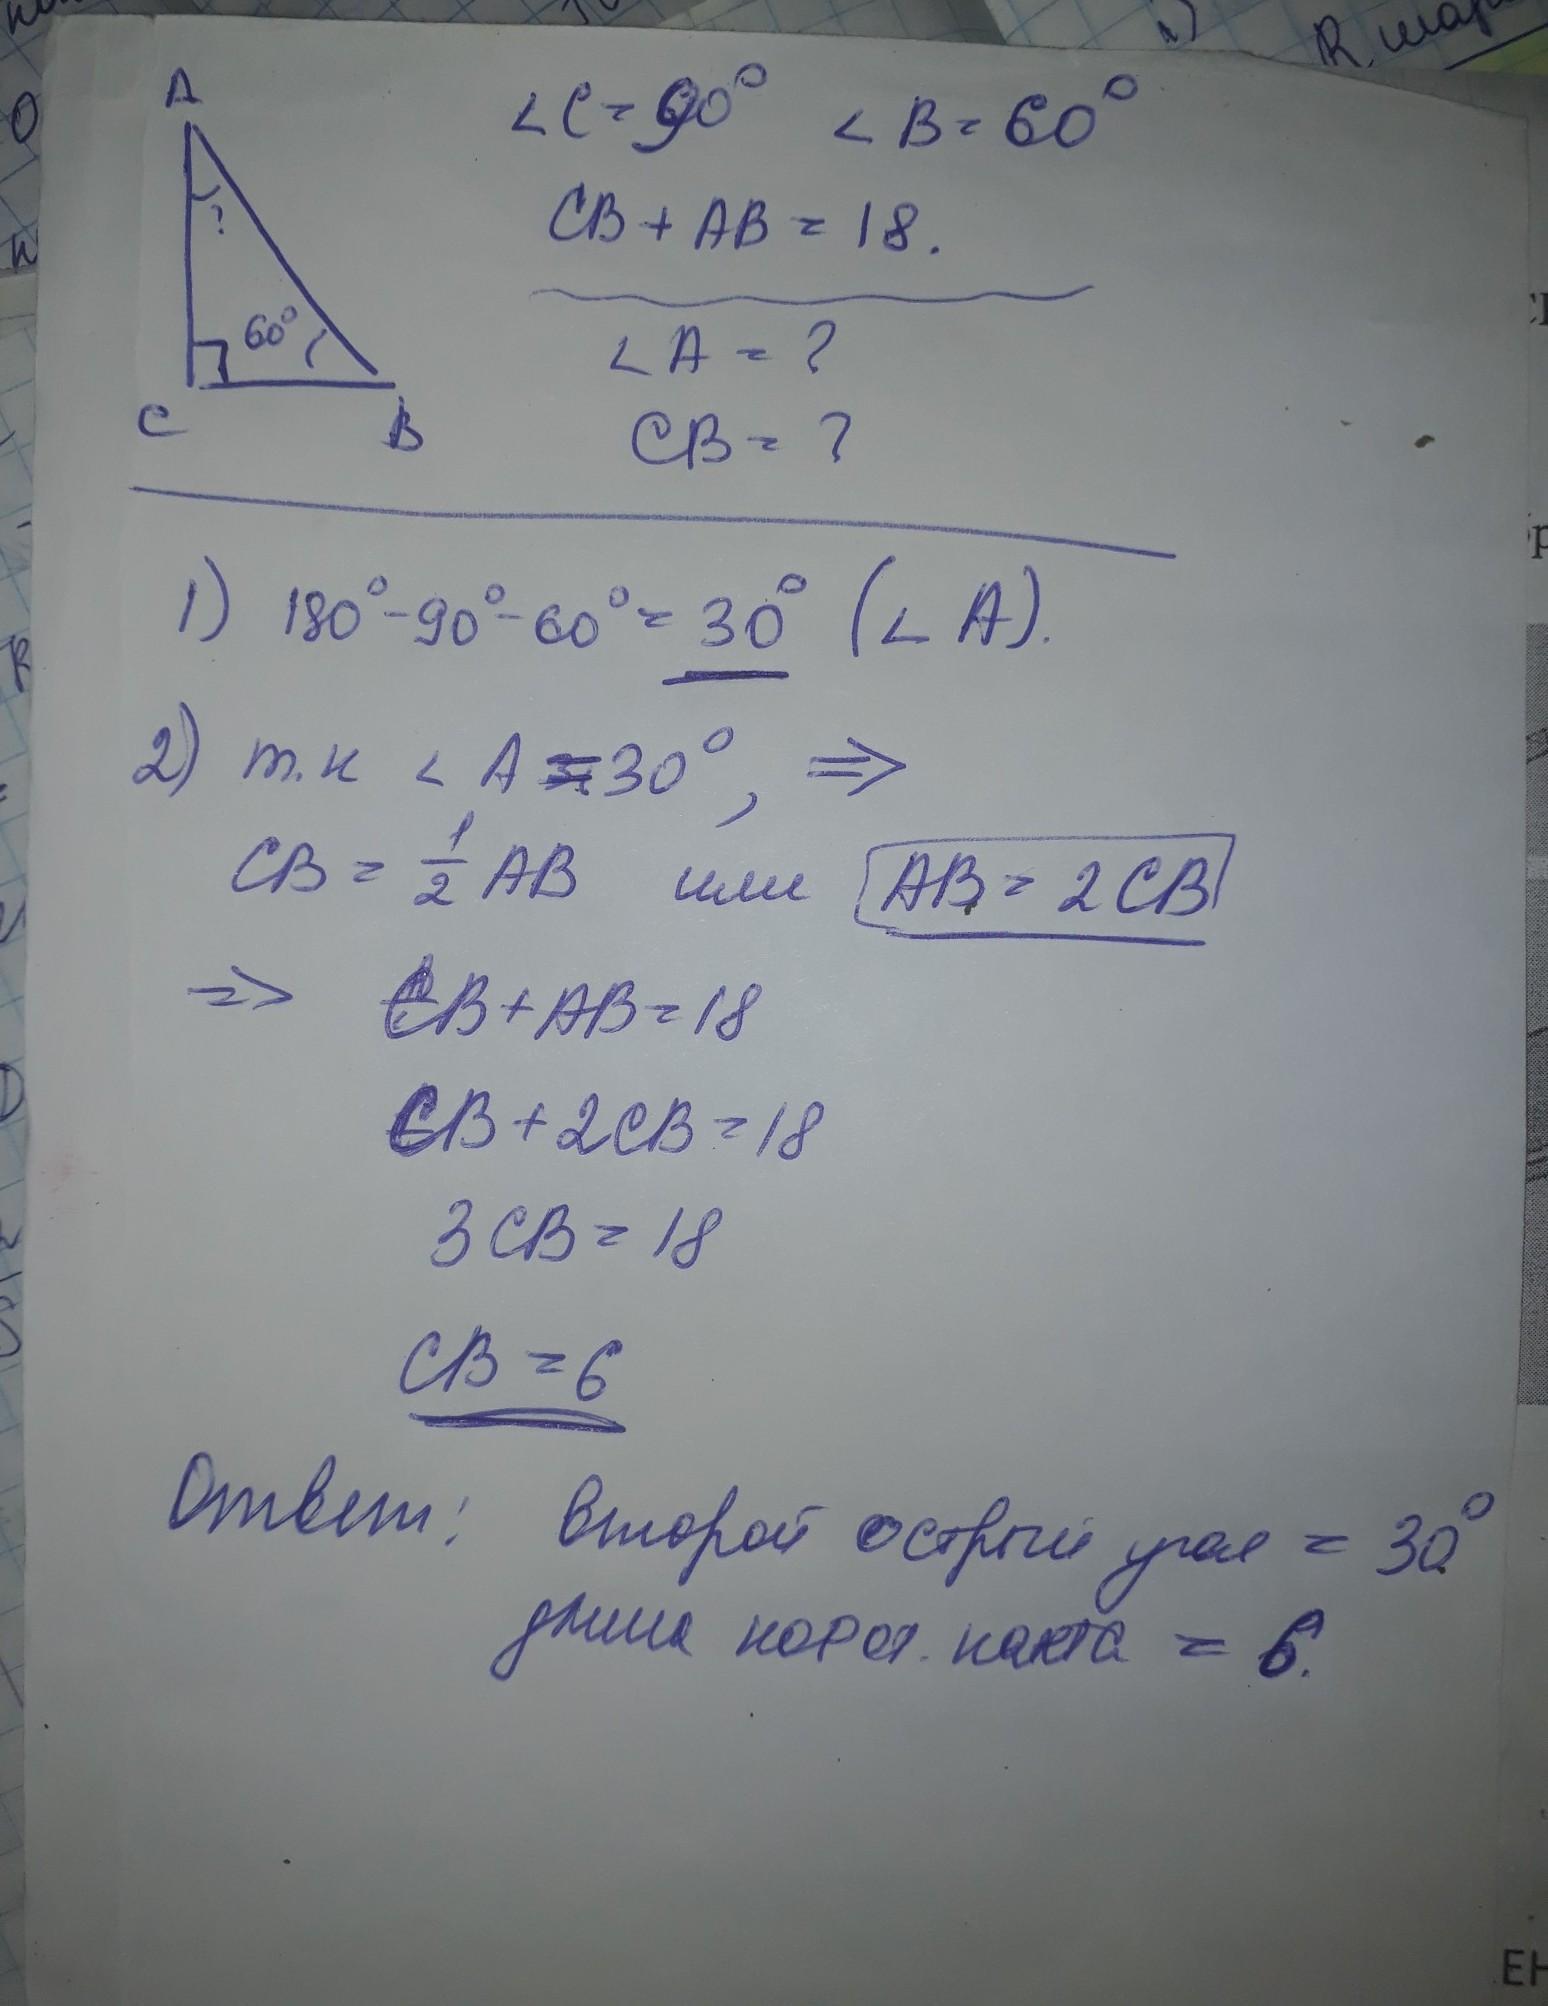 A
∠C = 90° ∠B = 60°
CB + AB = 18.
?
60°
C
B
∠A = ?
CB = ?
1) 180° - 90° - 60° = 30° (∠A).
2) т.к ∠A = 30°, ⇒
CB = 1/2 AB или AB = 2CB
⇒ CB + AB = 18
CB + 2CB = 18
3CB = 18
CB = 6
Ответ: второй острый угол = 30°
длина корот. катта = 6.
R. шара
ЕН